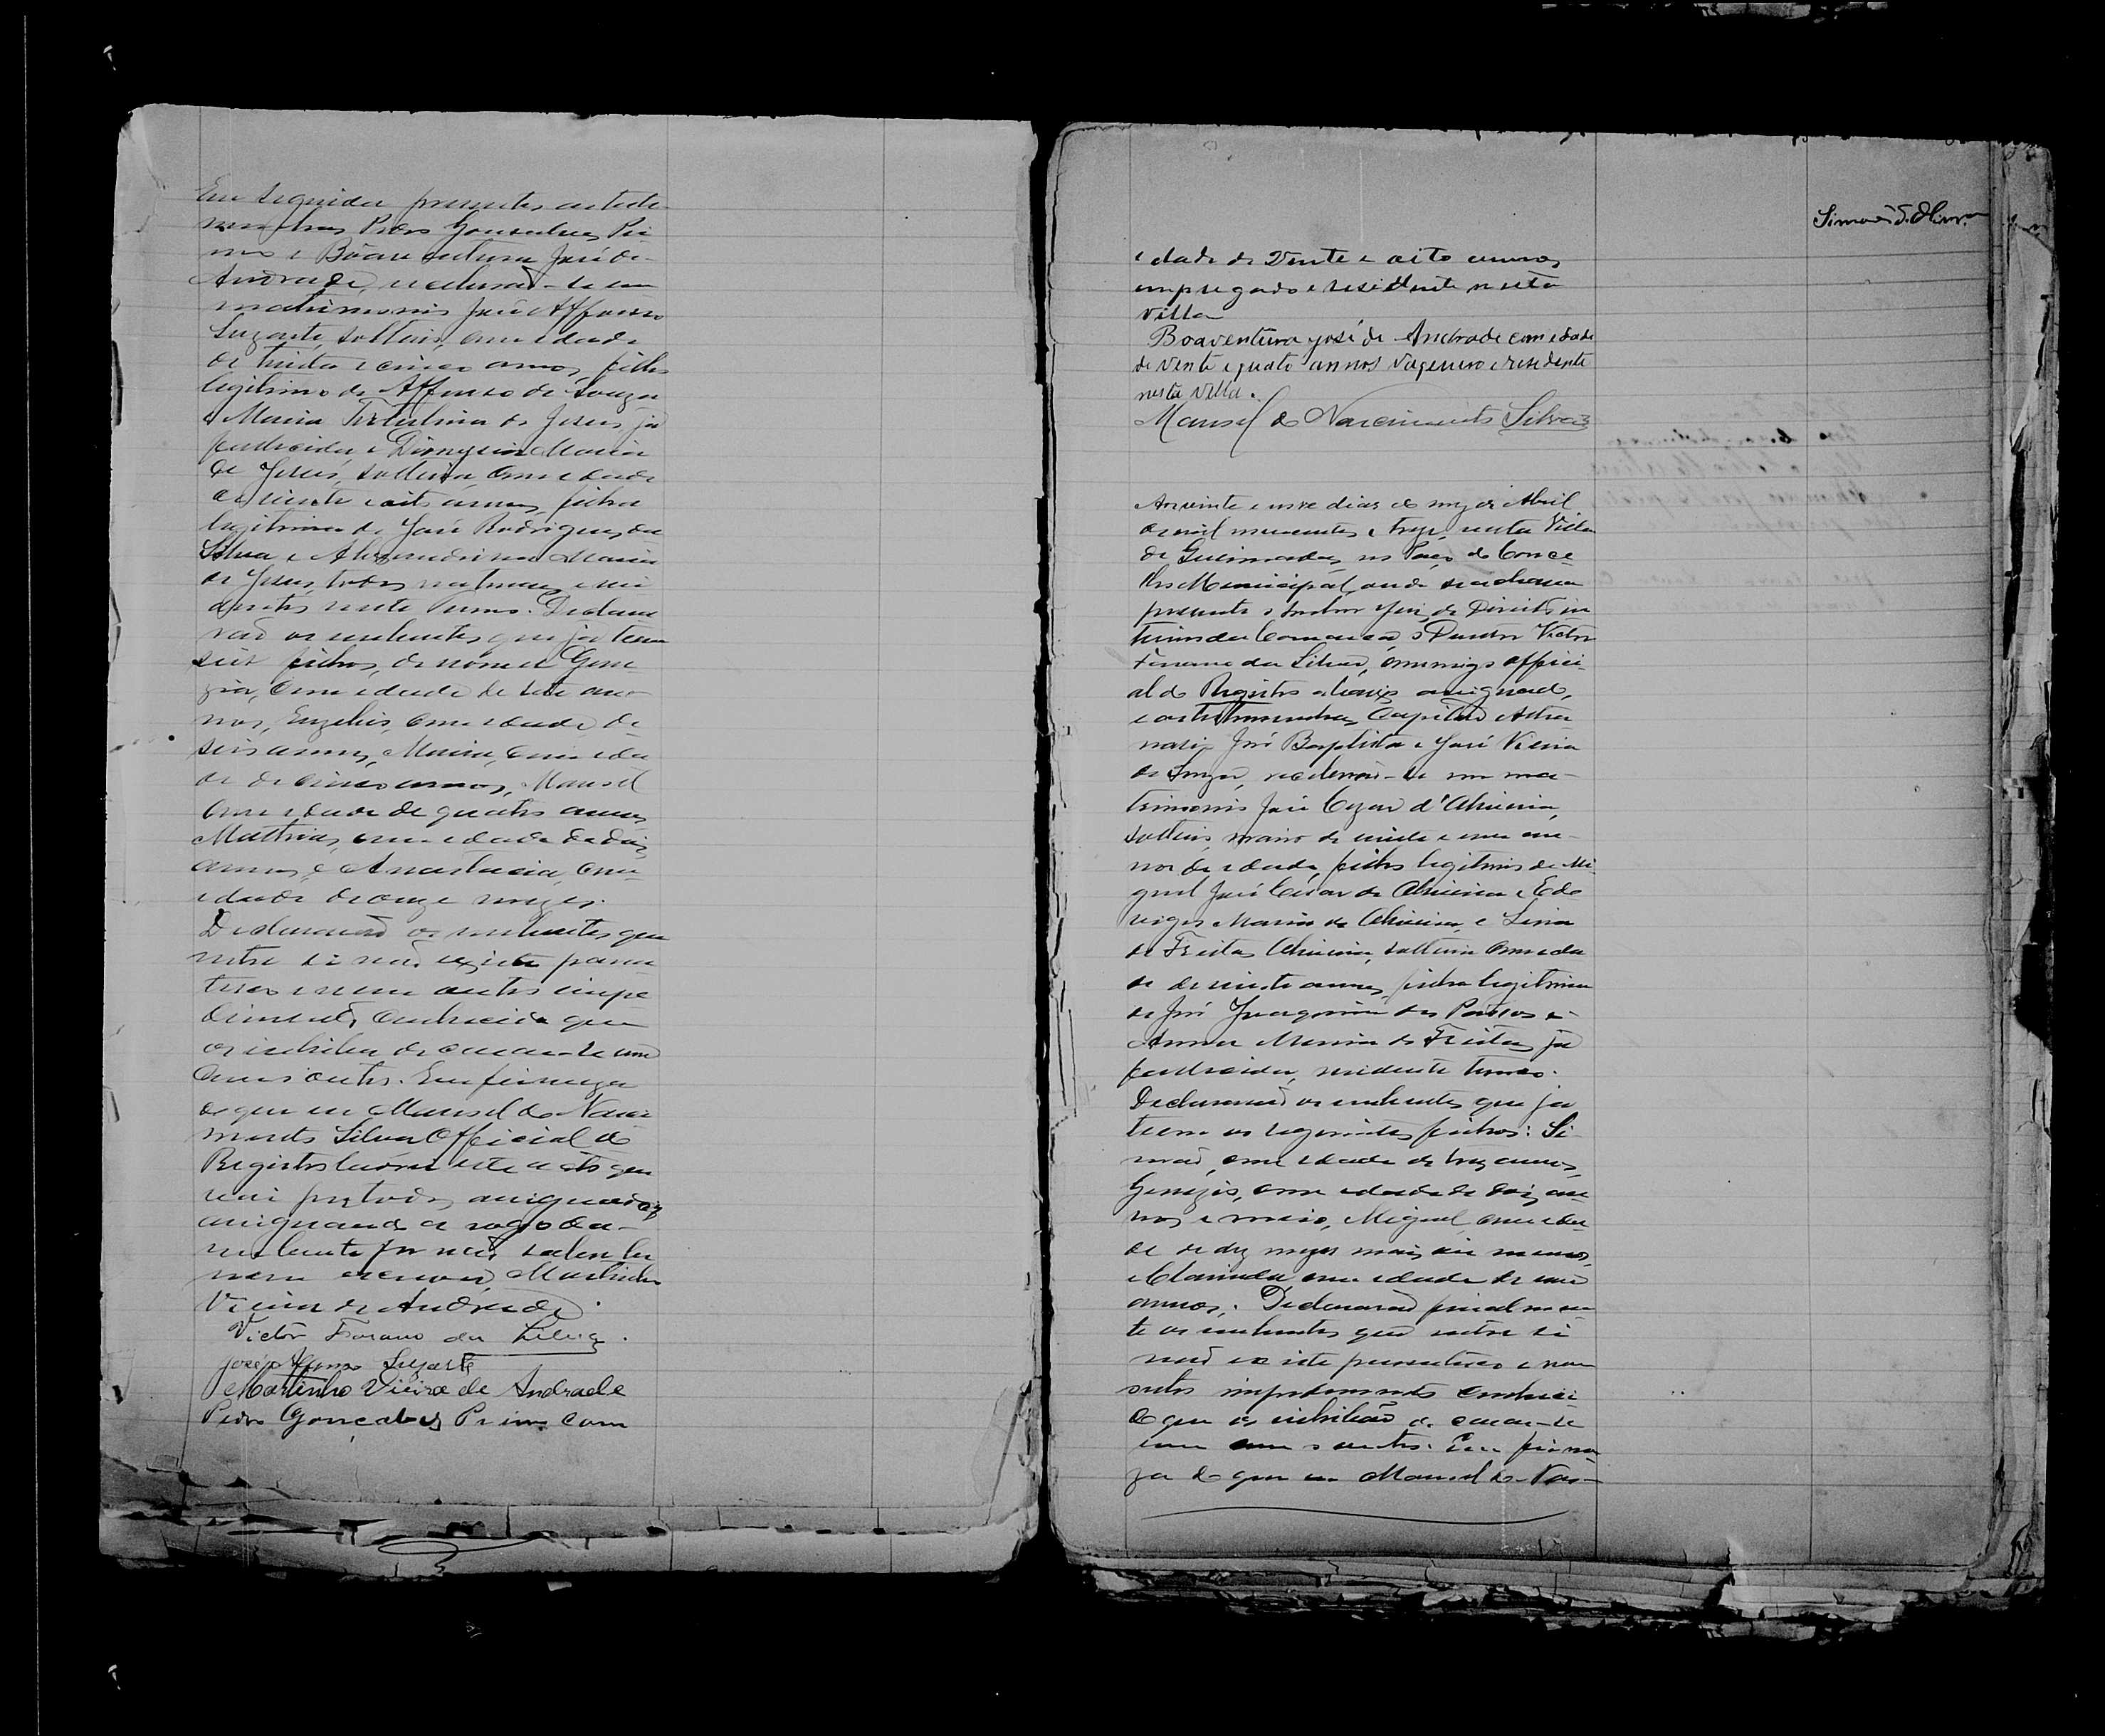 Em seguida presentes as teste-
munhas Pedro Gonsalves Pri-
mo e Bôaventura José de
Andrade, receberaõ-se em
matrimonio José Affonso
Lugarte, solteiro, com edade
de trinta e cinco annos, filho
legitimo de Affonso de Souza
e Maria Tertulina de Jesus, já
fallecida, e Dionysia Maria
de Jesus, solteira, com edade
de vinte e oito annos, filha
legitima de José Rodrigues da
Silva e Alexandrina Maria
de Jesus, todos naturaes e resi-
dentes neste termo. Declara-
raõ os nubentes que já teem
seis filhos, de nomes Gene-
zia, com edade de sete an-
nos, Euzebio, com edade de
seis annos, Maria, com eda-
de de cinco annos, Manoel
com edade de quatro annos,
Mathias, com edade de dois
annos, e Anastacia, com
edade de onze mezes.
Declararaõ os nubentes que
entre si naõ existe paren-
tesco e nem outro impe-
dimento conhecido que
os inhiba de casar-se um
com o outro. Em firmeza
do que eu Manoel do Nasci-
mento Silva Official do
Registro lavrei este acto que
vai por todos assignado,
assignando a rogo da
nubente por naõ saber ler
nem escrever, Martinho
Vieira de Andrade.
Victor da Silva.
José Affonso Lugarte
Martinho Vieira de Andrade
Pedro Gonçalves Primo com
Simaõ
edade de Vinte e oito annos
empregado e residente nesta
Villa
Boaventura José de Andrade com edade
de vinte e quato annos Vaqueiro e residente
nesta Villa.
Manoel do Nascimento Silva
Aos vinte e nove dias do mez de Abril
de mil novecentos e treze, nesta Villa
de Queimadas, no Paço do Conce-
lho Municipal, onde se achava
presente o Senhor Juiz de Direito in-
terino da Comarca, o Doutor Victor
da Silva, commigo offici-
al do Registro abaixo assignado,
e as testemunhas, Capitaõ
José Baptista e José Vieira
de Souza, receberaõ-se em ma-
trimonio José Cezar d'Oliveira,
solteiro, maior de vinte e um an-
nos de edade, filho legitimo de Mi-
guel José Cezar de Oliveira e Edo-
viges Maria de Oliveira, e Lina
de Freitas Oliveira, solteira com eda-
de de vinte annos, filha legitima
de José Joaquim dos Passos e
Anna Maria de Freitas, já
fallecida, residente termo.
Declararaõ os nubentes que já
teem os seguintes filhos: Si-
maõ, com edade de tres annos,
Genezio, com edade de dois an-
nos e meio, Miguel com eda-
de de dez mezes mais ou menos,
e Clarinda com edade de
annos. Declararaõ finalmen-
te os nubentes que entre si
naõ existe parentesco e nem
outro impedimento conheci-
do que os inhibaõ de casar-se
um com o outro. Em firme-
za do que eu Manoel do Nas-